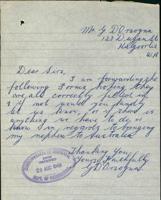 Mr G D'Orogna
123 Dugan St
Kalgoorlie
W.A
Dear Sirs,
I am forwarding the
following Forms hoping they
are all correctly filled in
if not would you kindly
let us know, or if there is
anything we have to do or
know in regards to bringing
my nephew to Australia
Thanking You
Yours Faithfully
G D'Orogna